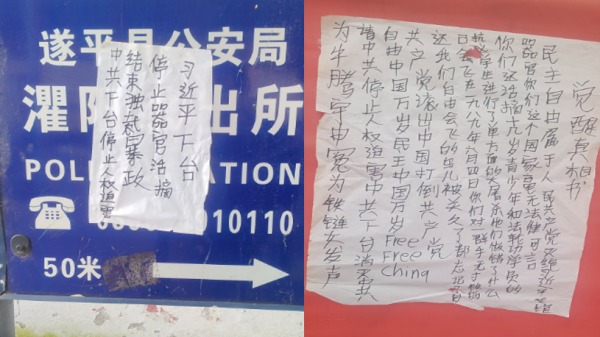 遂平县公安局
灌 出所
POLI ATION
010110
50米
习近平下台
停止器官活摘
结束独裁暴政
中共下台停止人权迫害
觉醒真相书
民主自由属于人民共产党
器官你们这个国家毫无法律可言
你们还活摘六岁青少年和法轮 学员的
抗议学生进行了单方面的屠杀他们做错了什么
日会飞在一九八九年六月四日你们对 群手无寸铁的
还我们自由会飞的鸟儿被关久了都忘记 自
共产党滚出中国打倒共产党
自由中国万岁民主中国万岁
Free
Free
China
请中共停止人权迫害中共下台 共
为牛腾宇申冤为铁链女发声